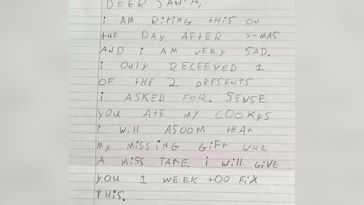 DEER SANTA,
i AM RiTiNG tHiS ON
tHE DAY AFTER X-MAS
AND i AM VERY SAD.
i ONLY RECEEVED 1
OF tHE 2 PRESENTS
i ASKED FOR. SENSE
YOU AtE MY COOKYS
i WiLL ASOOM tHAt
MY MiSSiNG GiFt WUZ
A MiSS TAKE. i WiLL GiVE
YOU 1 WEEK tOO FiX
tHiS.